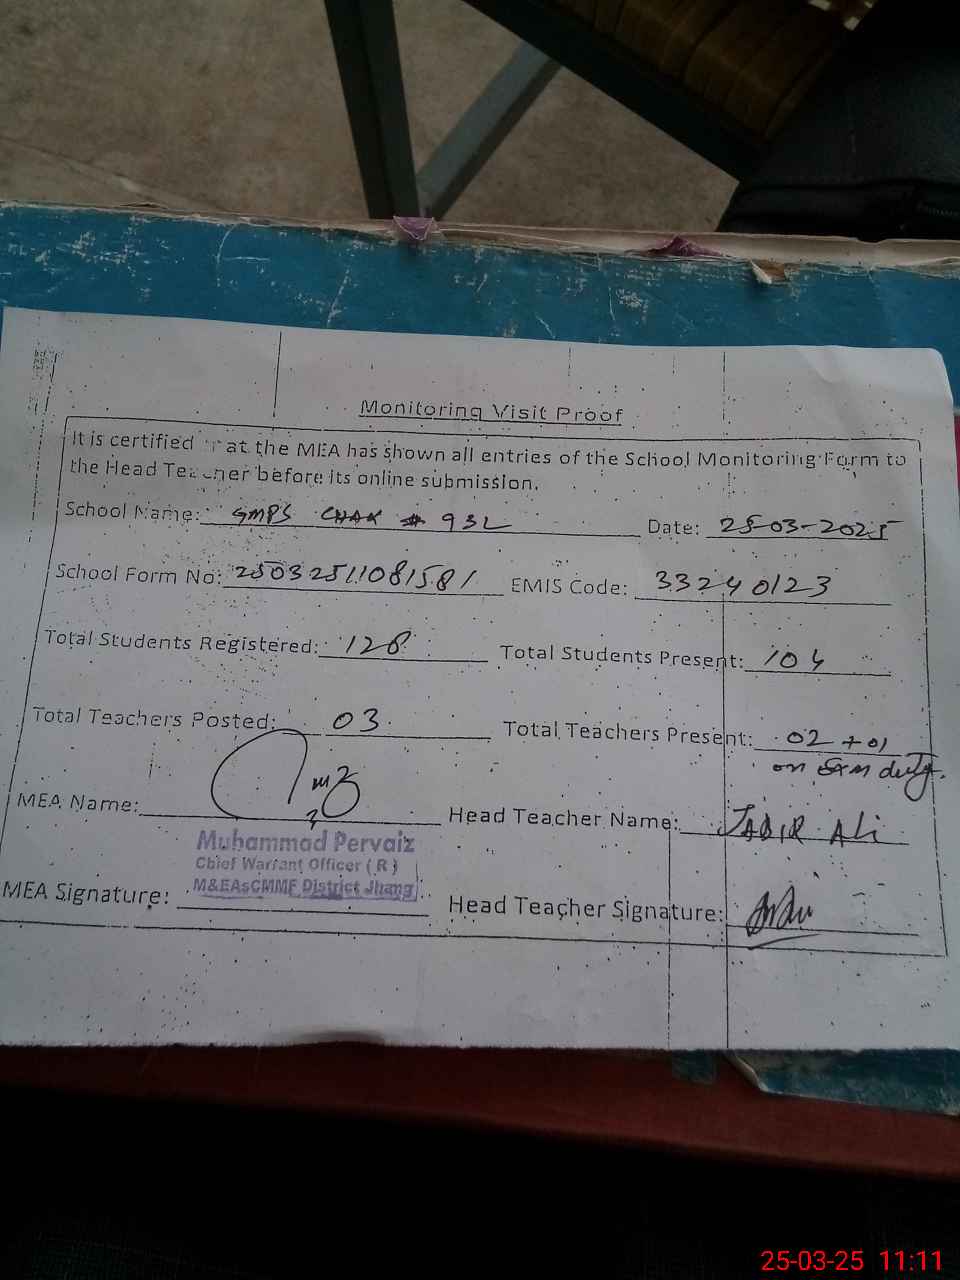 Monitoring Visit Proof
It is certified that the MEA has shown all entries of the School Monitoring Form to
the Head Teacher before its online submission.
School Name: GMPS CHAK # 93L Date: 25-03-2025
School Form No: 25032511081581 EMIS Code: 33240123
Total Students Registered: 128 Total Students Present: 104
Total Teachers Posted: 03 Total Teachers Present: 02 + 01
on Exm duty.
MEA Name: Head Teacher Name: JABIR Ali
Muhammad Pervaiz
Chief Warrant Officer ( R )
M&EAsCMMF District Jhang
MEA Signature: Head Teacher Signature:
25-03-25 11:11